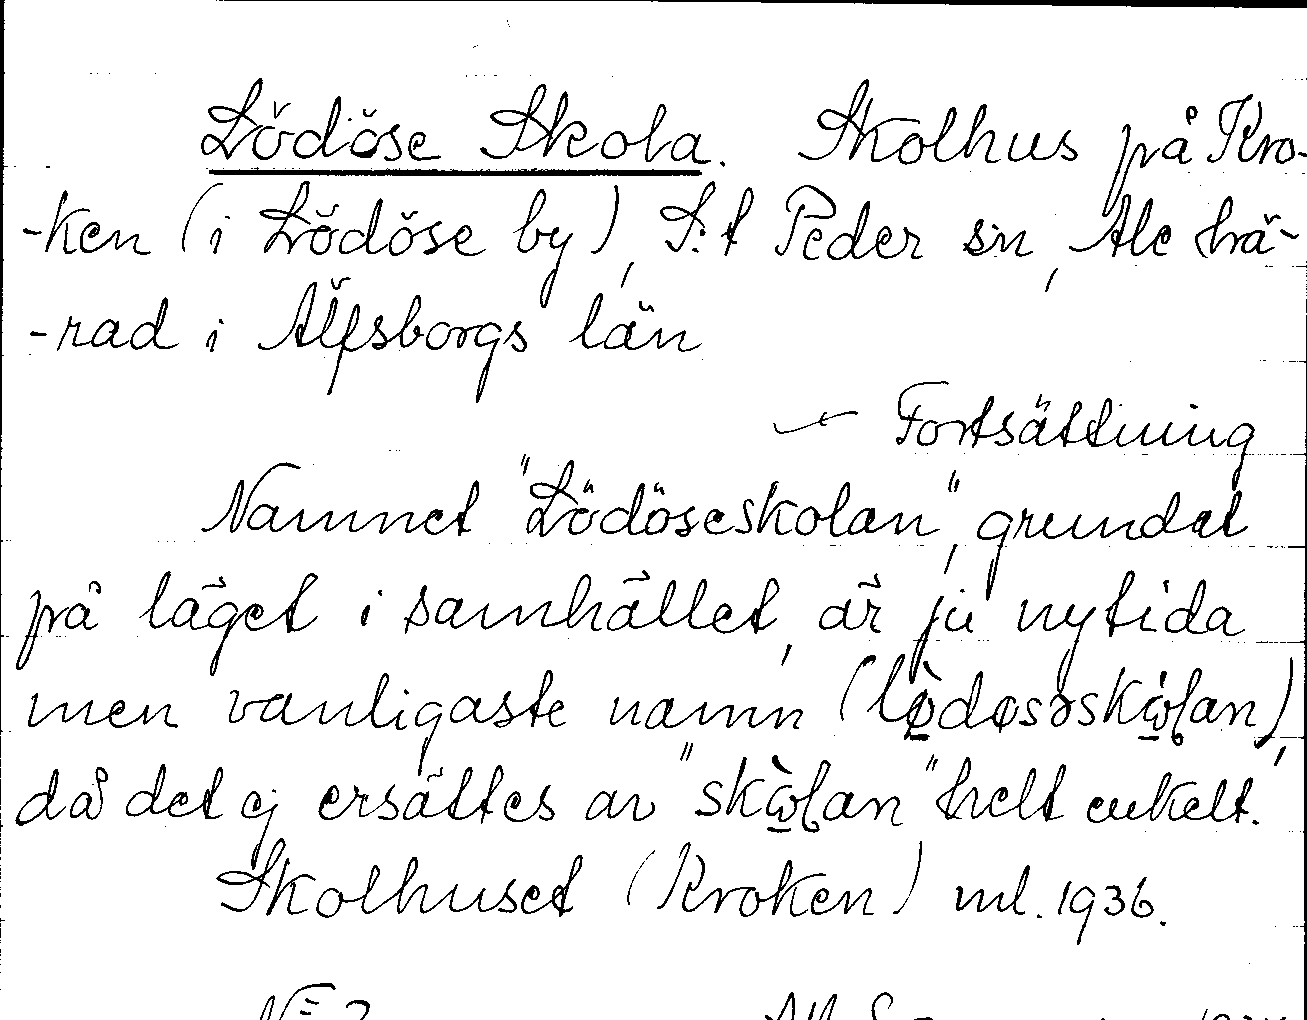 Lödöse Skola. Skolhus på Kro-
-ken (i Lödöse by), S:t Peder sn, Ale hä-
-rad i Älfsborgs län
Fortsättning
Namnet "Lödöseskolan", grundat
på läget i samhället, är ju nytida
men vanligaste namn (lø̀døsəskɷ̀ɭan),
då det ej ersättes av "skɷ̀ɭan" helt enkelt.
Skolhuset (Kroken) ml. 1936.